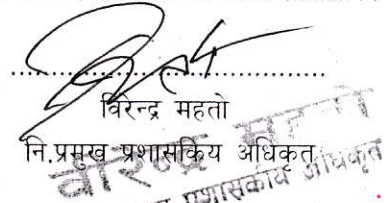 विरेन्द्र महतो
नि.प्रमुख प्रशासकिय अधिकृत
वीरेन्द्र महतो
प्रशासकीय अधिकृत